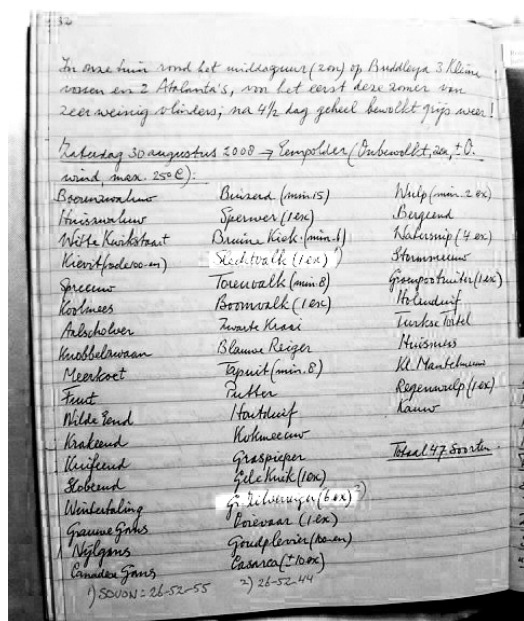 32
In onze tuin rond het middaguur (zon) op Buddleya 3 Kleine
vossen en 2 Atalanta's, voor het eerst deze zomer van
zeer weinig vlinders; na 4½ dag geheel bewolkt grijs weer!
Zaterdag 30 augustus 2008 → Eempolder (Onbewolkt, zon, ± O.
wind, max. 25° C):
Boerenzwaluw
Huiszwaluw
Witte Kwikstaart
Kievit
Spreeuw
Koolmees
Aalscholver
Knobbelzwaan
Meerkoet
Fuut
Wilde Eend
Krakeend
Kuifeend
Slobeend
Wintertaling
Grauwe Gans
Nijlgans
Canadese Gans
1) SOVON = 26-52-55
Buizerd (min. 15)
Sperwer (1 ex)
Bruine Kiek. (min. 6)
Slechtvalk (1 ex) 1)
Torenvalk (min. 8)
Boomvalk (1 ex)
Zwarte Kraai
Blauwe Reiger
Tapuit (min. 8)
Putter
Houtduif
Kokmeeuw
Graspieper
Gele Kwik (1 ex)
Gr. Zilverreiger (6 ex) 2)
Ooievaar (1 ex)
Goudplevier (100-en)
Casarca (± 10 ex)
2) 26-52-44
Wulp (min. 2 ex)
Bergeend
Watersnip (4 ex)
Stormmeeuw
Groenpootruiter (1 ex)
Holenduif
Turkse Tortel
Huismus
Kl. Mantelmeeuw
Regenwulp (1 ex)
Kauw
Totaal 47 Soorten.